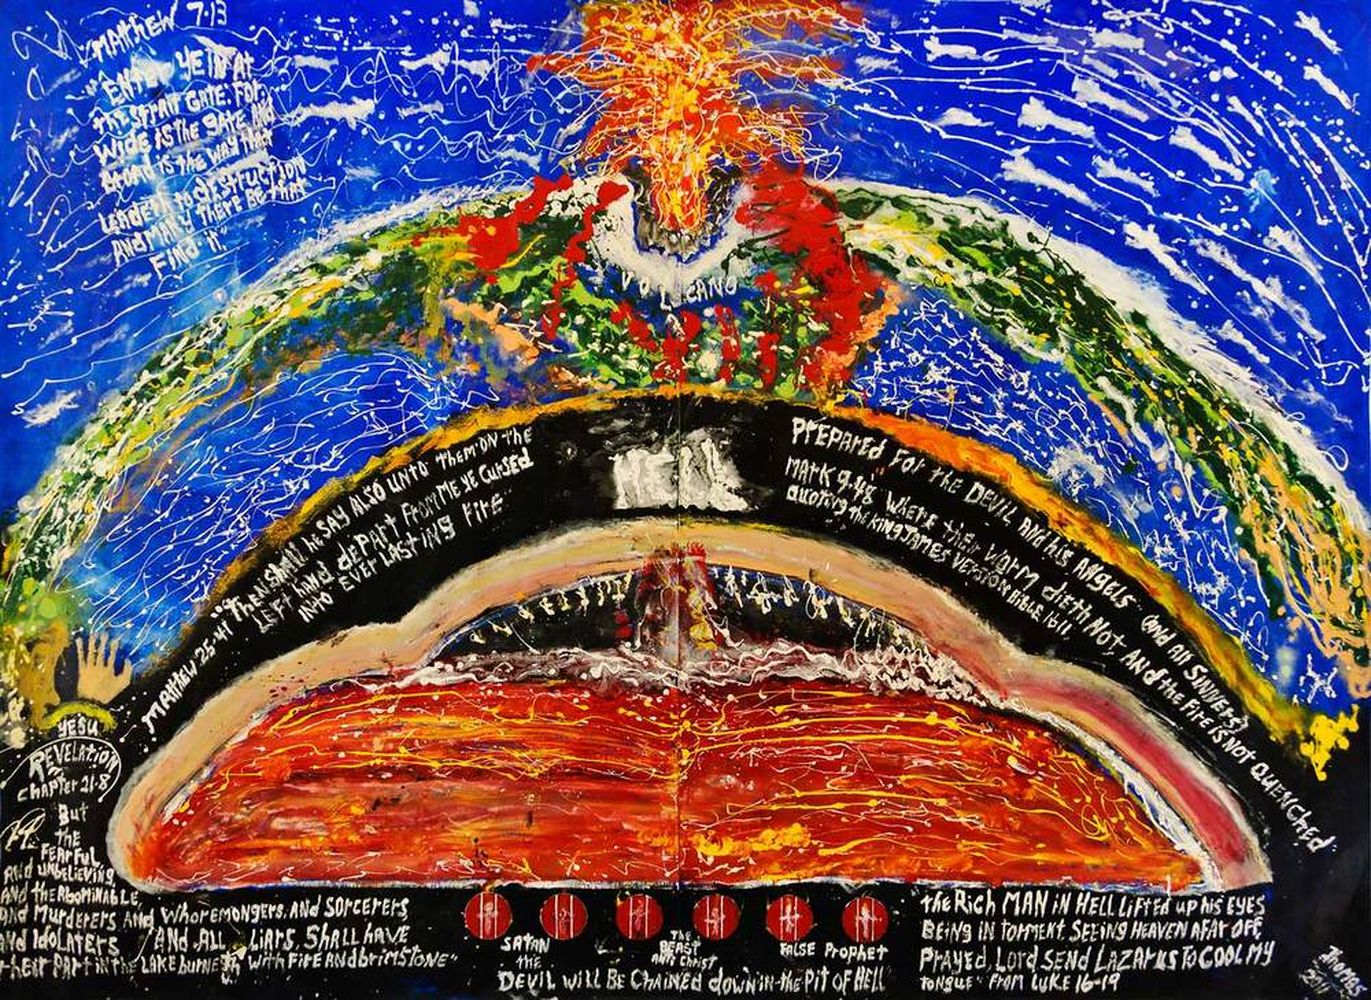 MATTHEW 7-13
"ENTER YE IN AT
the STRAIT GATE. FOR
WIDE is the GATE, AND
broad is the WAY that
LEADETH TO dESTRUCTION
AND MANY THERE BE THAT
FIND. it"
VOLCANO
HELL
MATTHEW 25-41 "Then shall he SAY ALSO UNTO THEM ON THE
LEFT hand dEPART FROM ME YE CURSED
INTO EVERLASTING FIRE
PREPARED FOR the DEVIL AND his ANGELS" (and All SINNERS)
MARK 9.48 WHERE their WORM dieth NOT. AND the FIRE is NOT QUENCHED
quoting the KING JAMES VERSION BIBLE. 1611.
YESU
REVELATION
chapter 21-8
But
the
FEARFUL
AND UNBELIEVING
AND the AbOMiNABLE,
and Murderers AND Whoremongers, ANd SORCERERS
AND IdOLATERS AND ALL LIARS, SHALL HAVE
their PART iN the LAKE burneth With FIRE ANd bRimSTONE"
SATAN
the
THE
BEAST
ANTi CHRIST
FALSE PROPHET
DEVIL WILL BE CHAINED dOWN-iN-the PIT OF HELL
the Rich MAN iN HELL LIFTED UP his EYES
BEING IN TORMENT, SEEING HEAVEN AFAR OFF.
PRAYED, LORD SEND LAZARUS TO COOL MY
TONGUE" FROM LUKE 16-19
THOMAS
2011